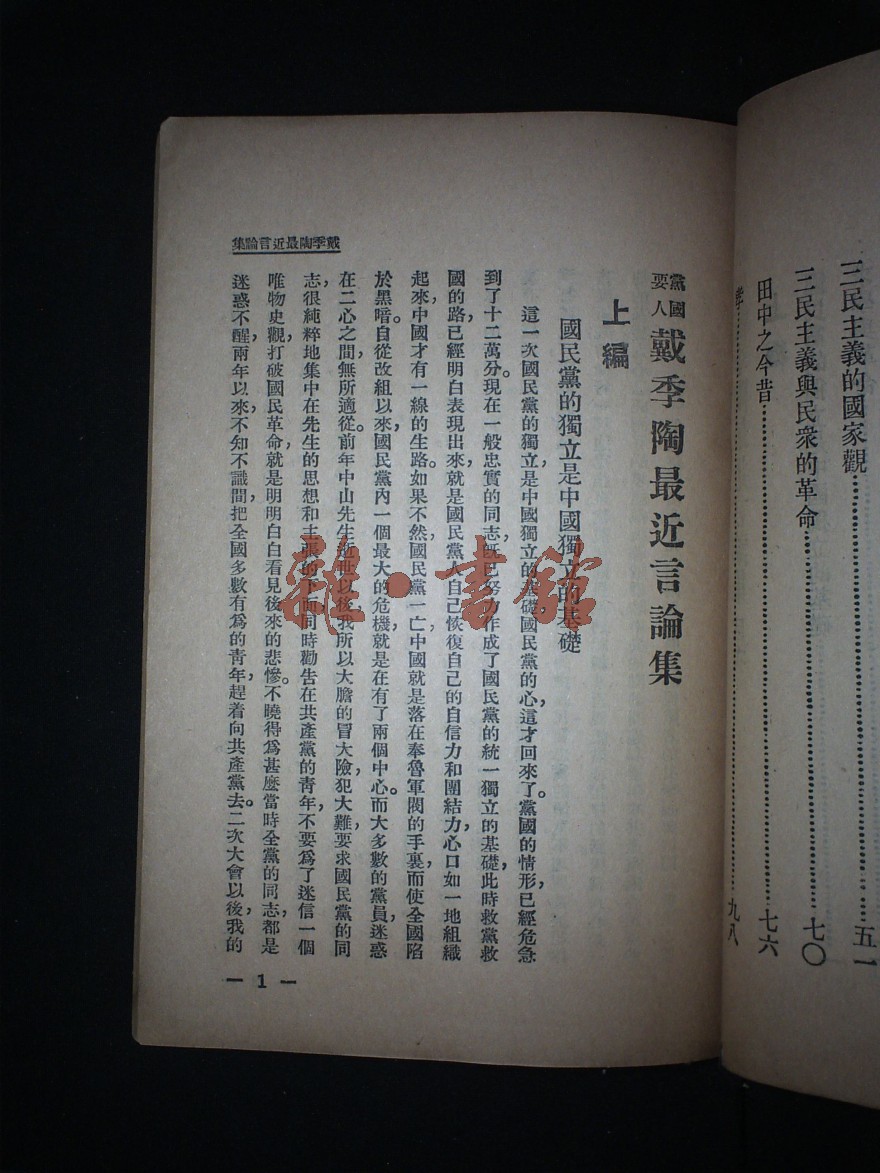 三民主義的國家觀……………………五一
三民主義與民衆的革命……………………七〇
田中之今昔……………………七六
……………………九八
黨國要人 戴季陶最近言論集
上編
國民黨的獨立是中國獨立的基礎
這一次國民黨的獨立,是中國獨立的基礎國民黨的心,這才回來了。黨國的情形,已經危急
到了十二萬分。現在一般忠實的同志,旣已努力作成了國民黨的統一獨立的基礎,此時救黨救
國的路,已經明白表現出來,就是國民黨人自己恢復自己的自信力和團結力,心口如一地組織
起來,中國才有一線的生路。如果不然,國民黨一亡,中國就是落在奉魯軍閥的手裏,而使全國陷
於黑暗。自從改組以來,國民黨內一個最大的危機,就是在有了兩個中心。而大多數的黨員,迷惑
在二心之間,無所適從。前年中山先生逝世以後,我所以大膽的冒大險,犯大難,要求國民黨的同
志,很純粹地集中在先生的思想和主張的下面,同時勸告在共產黨的靑年,不要爲了迷信一個
唯物史觀,打破國民革命,就是明明白白看見後來的悲慘。不曉得爲甚麽當時全黨的同志,都是
迷惑不醒,兩年以來,不知不識間,把全國多數有爲的靑年,趕着向共產黨去。二次大會以後,我的
戴季陶最近言論集
— 1 —
雜·書館